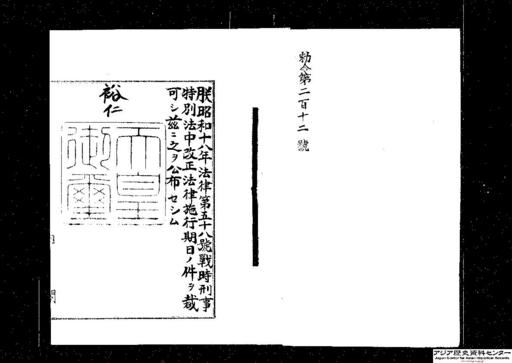 勅令第二百十二號
朕昭和十八年法律第五十八號戰時刑事
特別法中改正法律施行期日ノ件ヲ裁
可シ茲ニ之ヲ公布セシム
裕仁
天皇
御璽
アジア歴史資料センター
Japan Center for Asian Historical Records